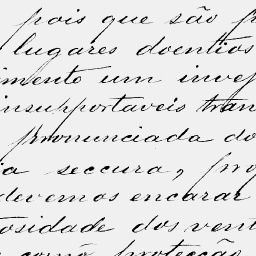 pois que são p
lugares doentios
imento um inve
insupportaveis tran
pronunciada do
ia seccura, pro
devemos encarar
tosidade dos vent
como protecção